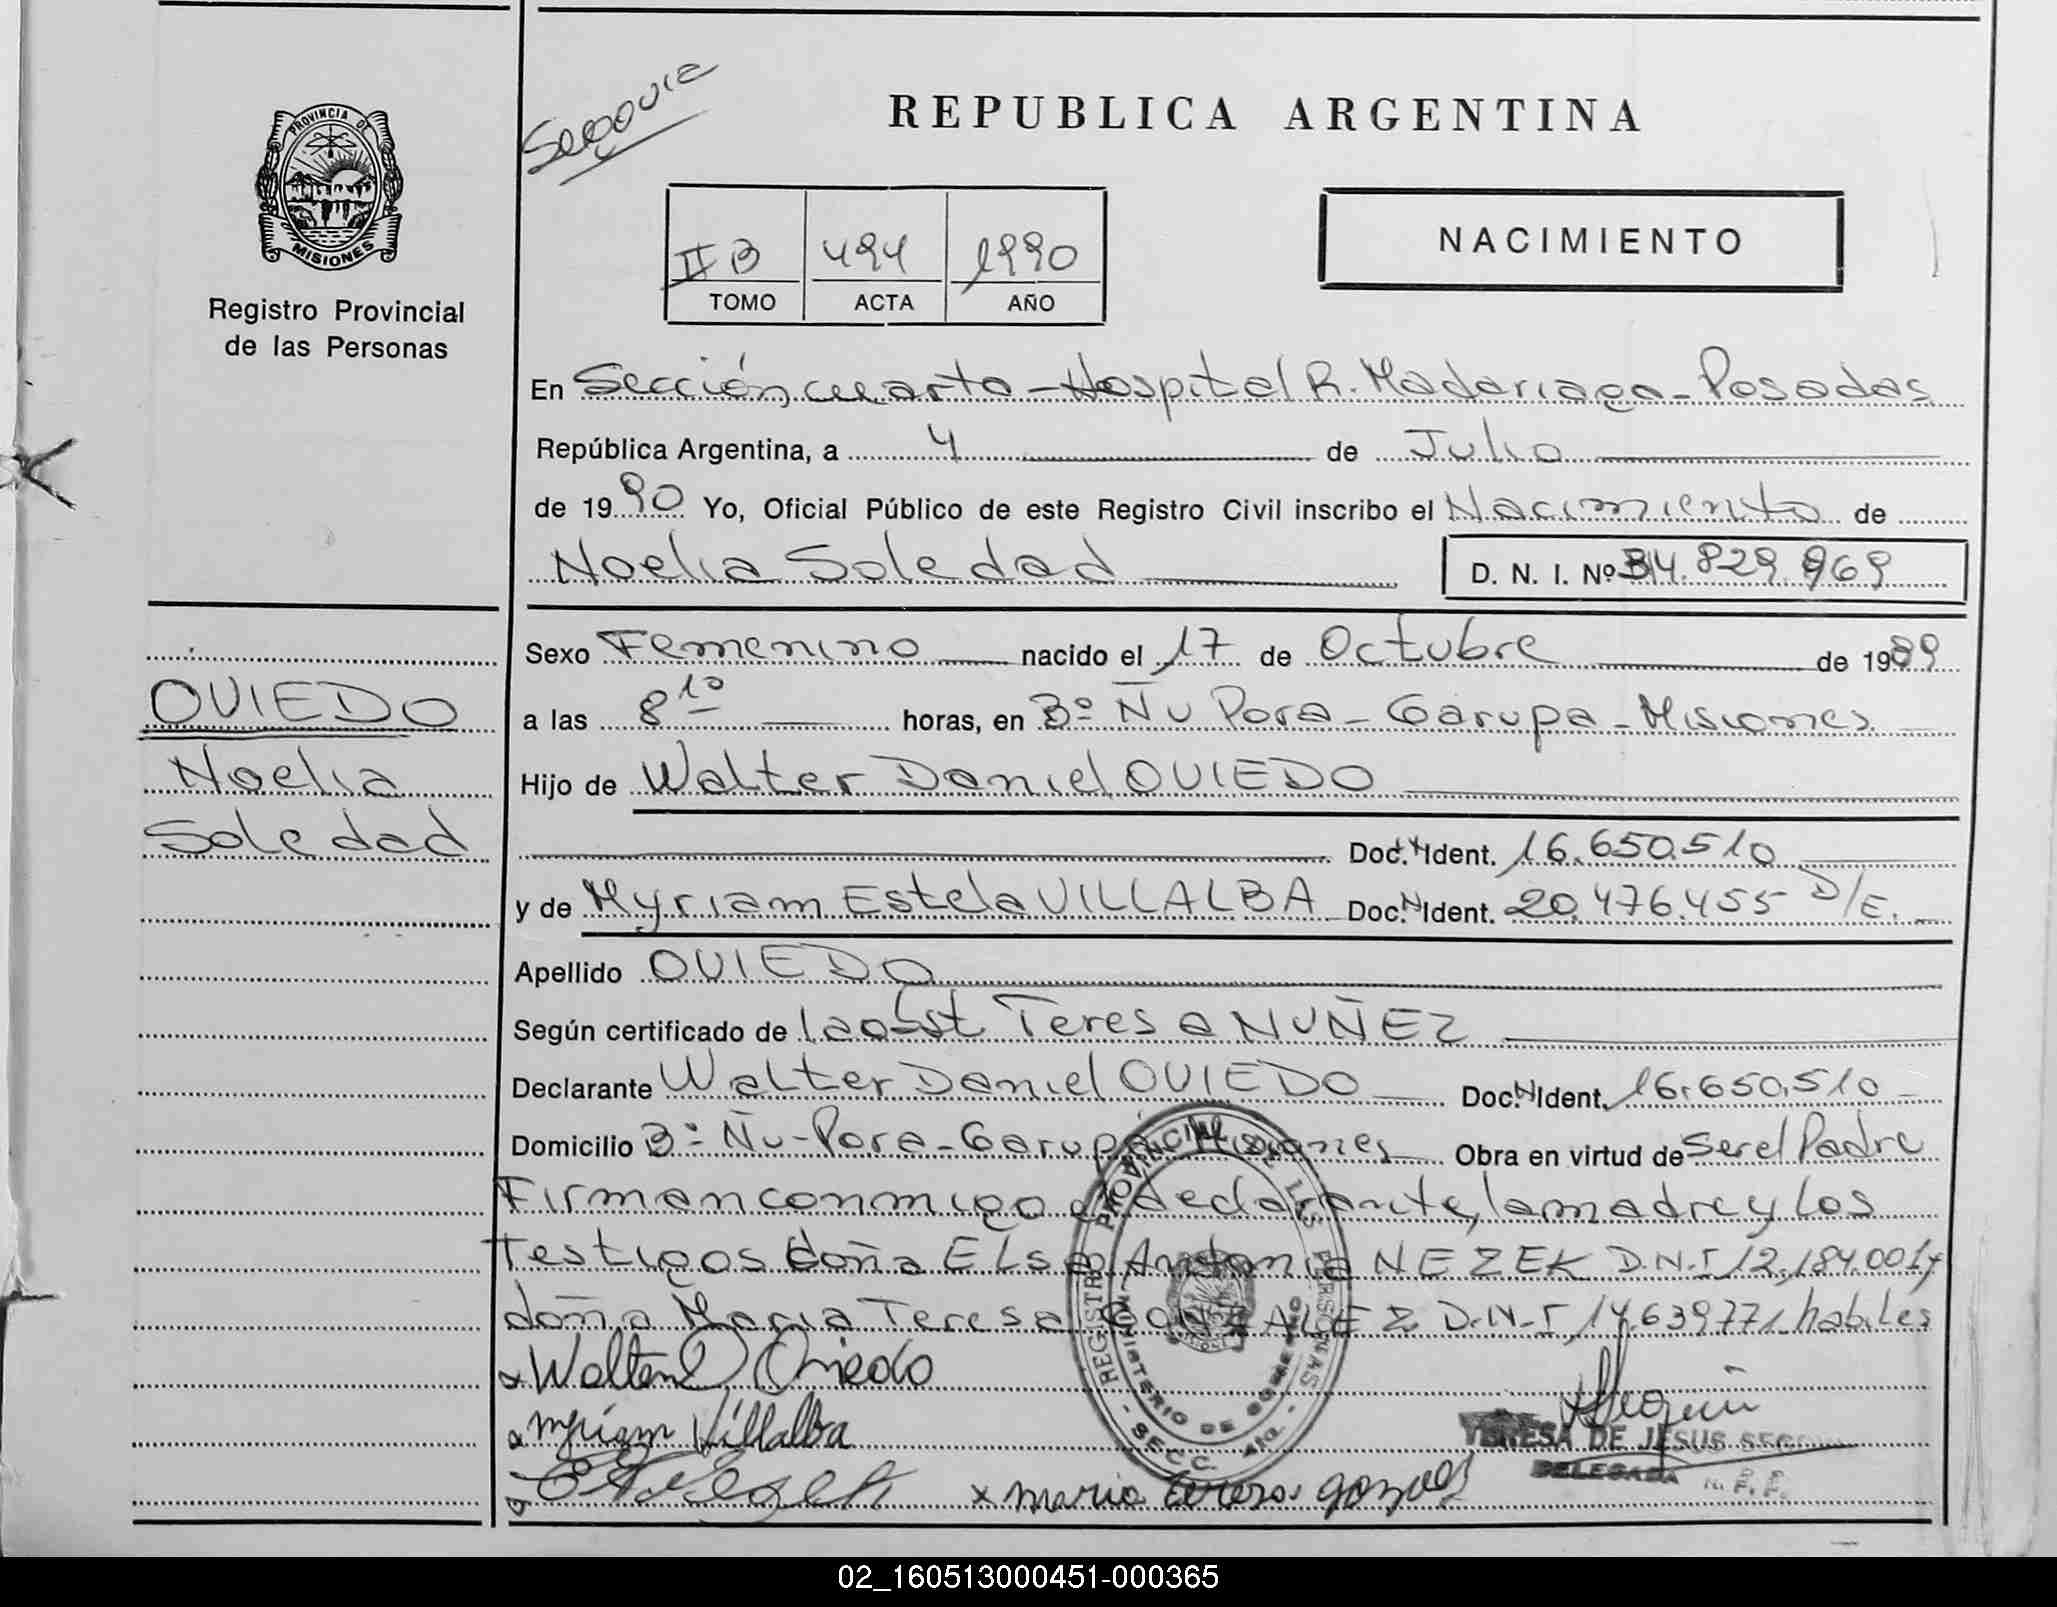 Segovia
REPUBLICA ARGENTINA
PROVINCIA DE
MISIONES
Registro Provincial
de las Personas
II B 494 1990
TOMO ACTA AÑO
NACIMIENTO
En Sección cuarta - Hospital R. Madariaga - Posadas
República Argentina, a 4 de Julio
de 1990 Yo, Oficial Público de este Registro Civil inscribo el Nacimiento de
Noelia Soledad D. N. I. Nº 34.829.969
Sexo Femenino nacido el 17 de Octubre de 1989
OVIEDO
Noelia
Soledad
a las 8 10 horas, en Bº Ñu Pora - Garupa - Misiones
Hijo de Walter Daniel OVIEDO
Doc. N Ident. 16.650.510
y de Myriam Estela VILLALBA Doc. N Ident. 20.476.455 D/E.
Apellido OVIEDO
Según certificado de la Obst Teresa NUÑEZ
Declarante Walter Daniel OVIEDO Doc. N Ident. 16.650.510
Domicilio Bº Ñu - Pora - Garupa Misiones Obra en virtud de Ser el Padre
Firman conmigo el declarante, la madre y los
Testigos doña Elsa Antonia NEZEK D.N.I 12.184.001 y
doña Maria Teresa GONZALEZ D.N.I 14.639.771, habiles
x Walter D Oviedo
x Myriam Villalba
x maria teresa gonzalez
REGISTRO PROVINCIAL DE LAS PERSONAS
MINISTERIO DE GOBIERNO
- SECC. 4ta. -
TERESA DE JESUS
DELEGADA
02_160513000451-000365